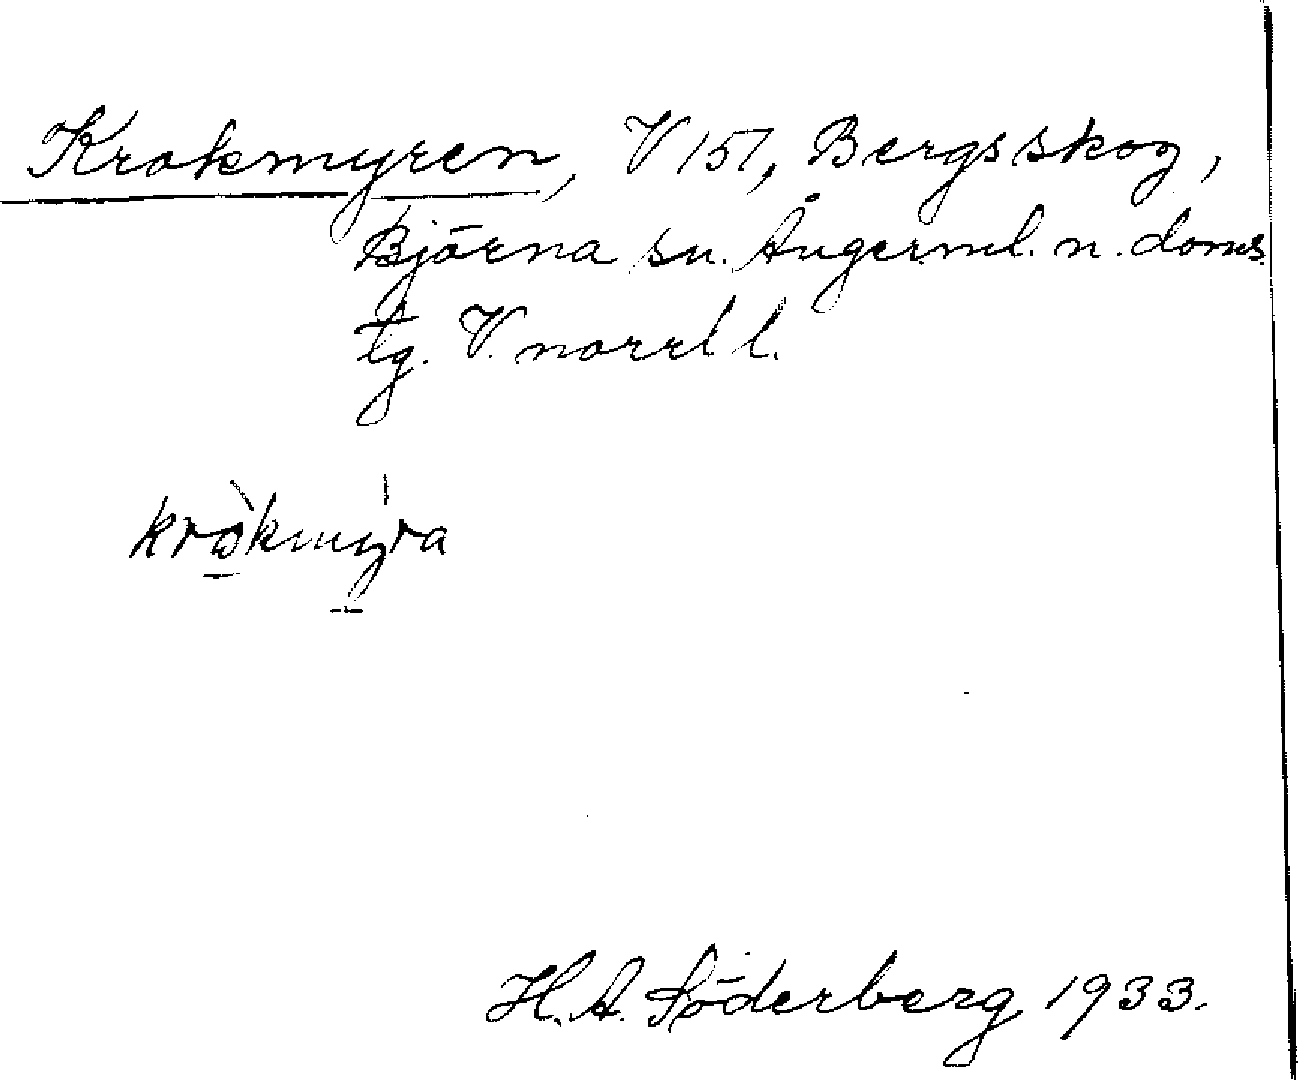 Krokmyren, V 151, Bergsskog,
Björna sn. Ångerml. n. doms.
tg. V. norrl. l.
kròkmyra
H. A. Söderberg 1933.